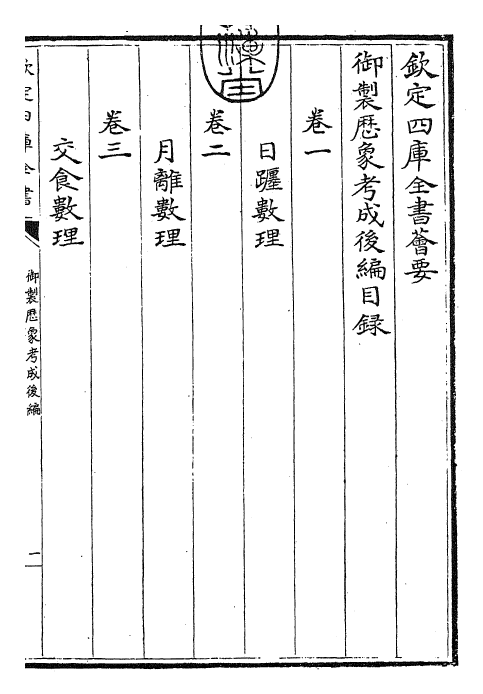 欽定四庫全書薈要
御製歷象考成後編目録
卷一
日躔數理
卷二
月離數理
卷三
交食數理
欽定四庫全書
御製歷象考成後編
一